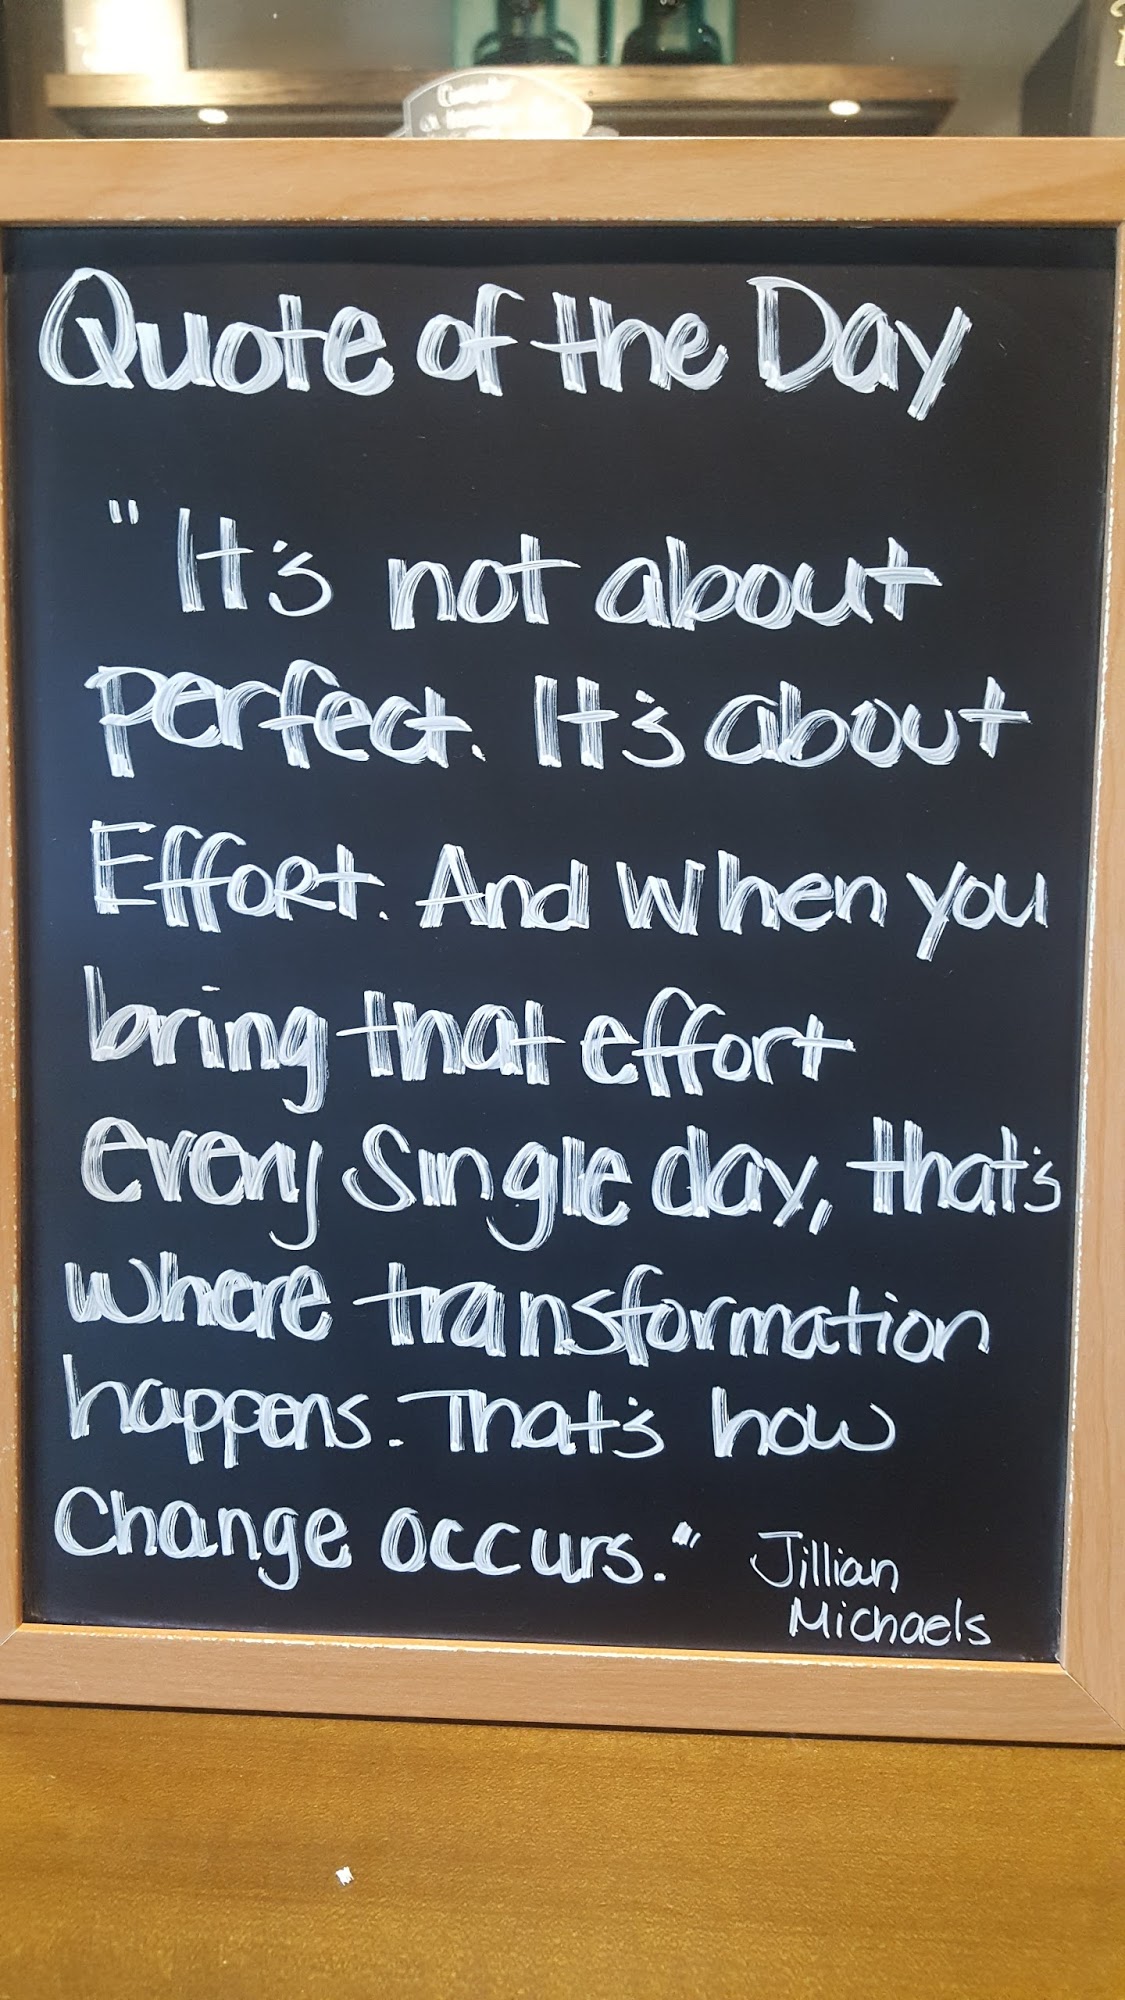 Quote of the Day
"It's not about
perfect. It's about
Effort. And when you
bring that effort
every single day, that's
where transformation
happens. That's how
Change occurs."
Jillian
Michaels